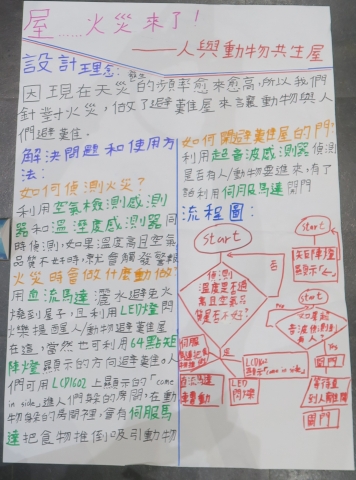 屋……火災來了!
——人與動物共生屋
設計理念:
因現在天災發生的頻率愈來愈高,所以我們
針對火災,做了避難屋來讓動物與人
們避難。
解決問題和使用方
法:
如何偵測火災?
利用空氣檢測感測
器和溫溼度感測器同
時偵測,如果溫度高且空氣
品質不好時,就會觸發警報
火災時會做什麼動做?
用直流馬達灑水避免火
燒到屋子,且利用LED燈閃
爍提醒人/動物避難屋
在這,當然也可利用64點矩
陣燈顯示的方向避難。人
們可用LCD1602上顯示的「come
in side」進人們躲的房間,在動
物躲的房間裡,會有伺服馬
達把食物推倒吸引動物
如何開避難屋的門?
利用超音波感測器偵測
是否有人/動物要進來,有了
話利用伺服馬達開門
流程圖:
start
偵測
溫度是否過
高且空氣品
質是否不好?
否
是
伺服
直流馬達
LED
閃爍
LCD1602
顯示「come in side」
start
矩陣燈
顯示「←」
start
如果超
音波偵測到
有人?
開門
等待直到
別人離開
關門